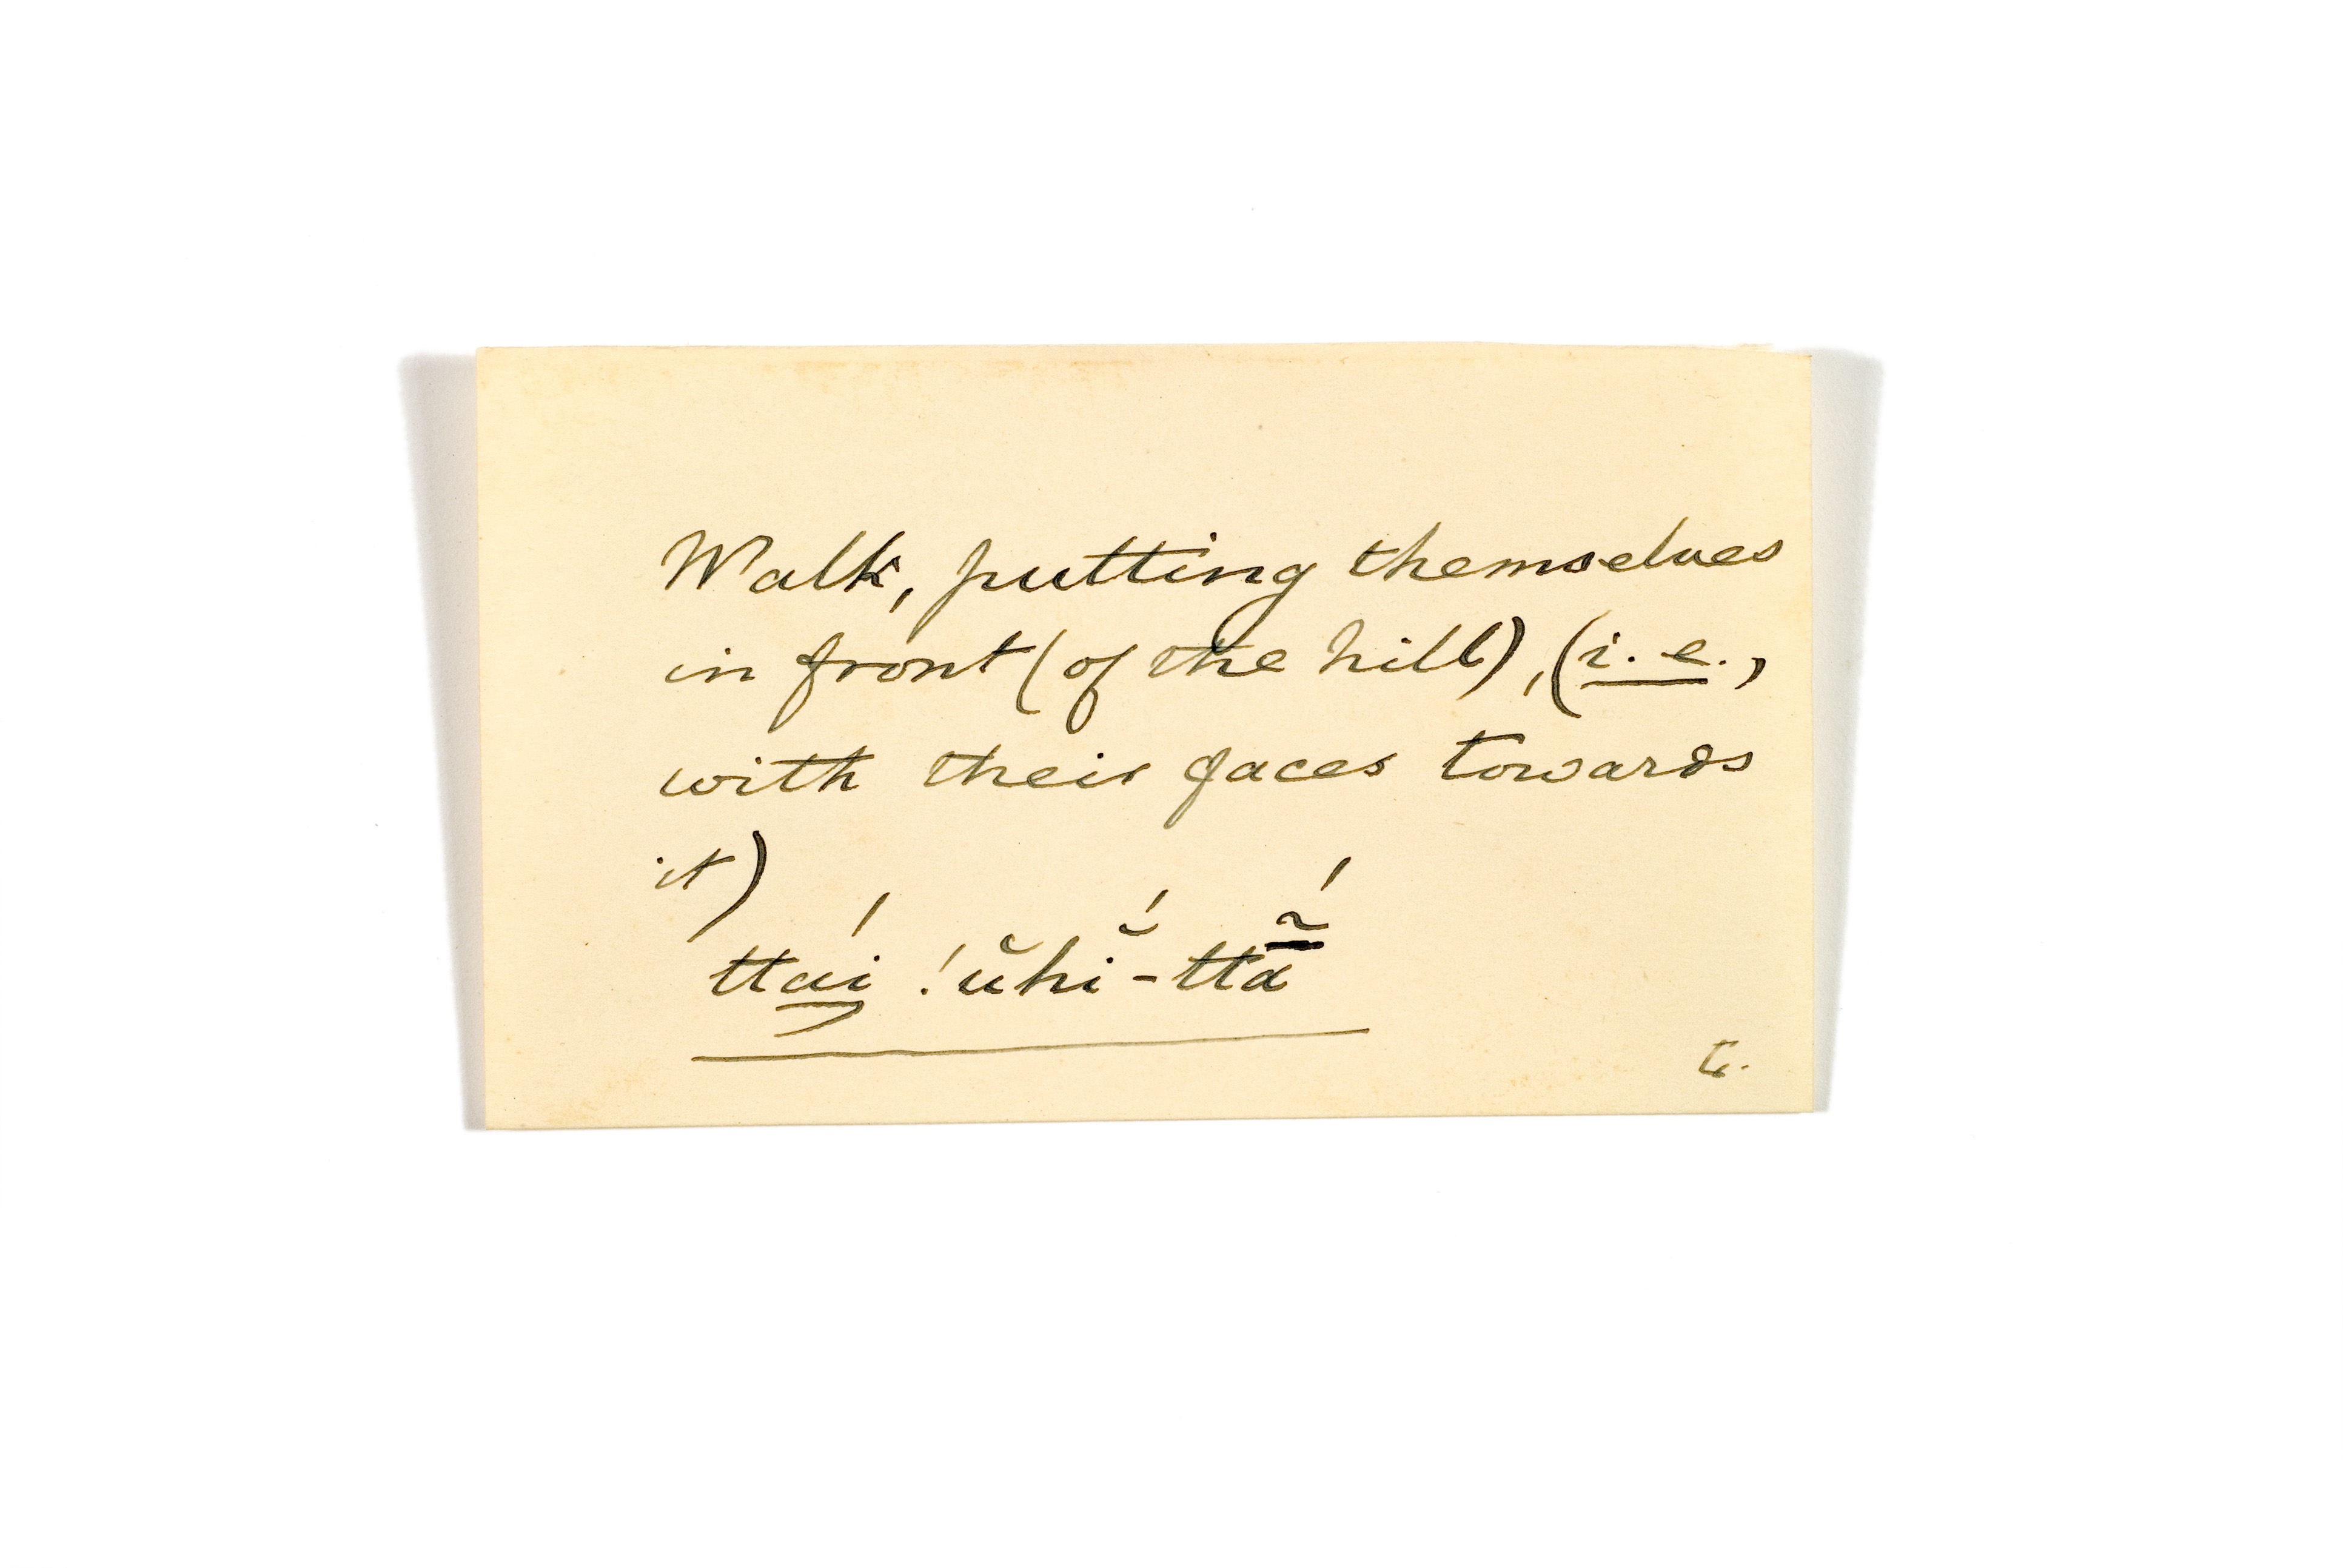 Walk, putting themselves
in front (of the hill), (i. e.,
with their faces towards
it)
ttaí̱ !ŭhĭ́-ttā̃́